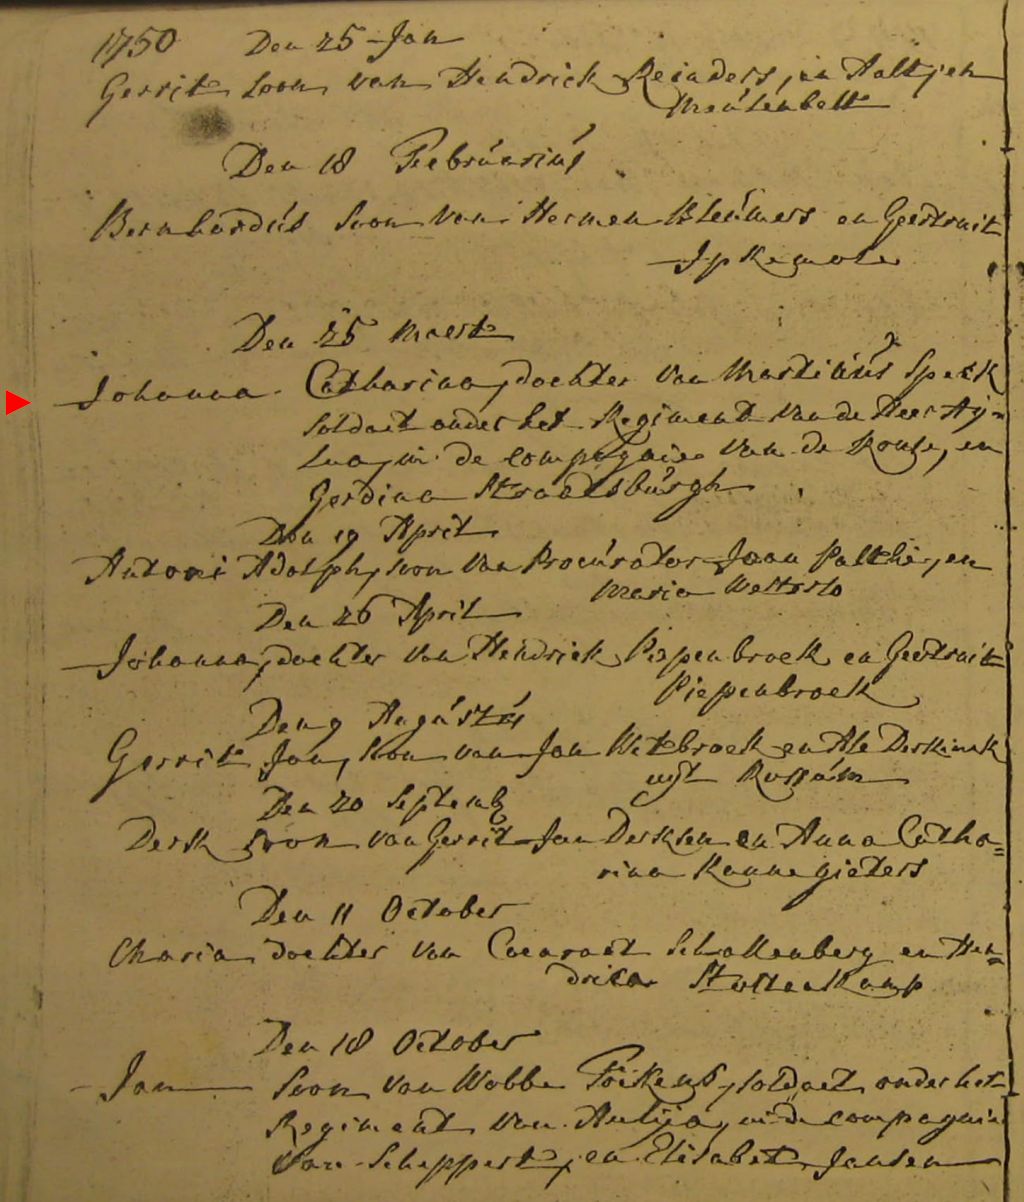 1750 Den 25 Jan
Gerrit soon van Hendrick Reinders, en Aaltjen
Meulenbelt
Den 18 Feebruarius
Bernhardus soon van Hermen Bleumers en Geertruit
Den 25 Maert
Johanna Catharina, dochter van Martinus Speck
soldaet onder het Regiment van de Heer
in de compagnie van de Konge, en
Gerdina Straatsburgh
Den 19 April
Antoni Adolph, soon van Procurator Jaan Palthe, en
Maria Westerlo
Den 26 April
Johanna, dochter van Hendrick Piepenbroek en Geertruit
Piepenbroek
Den 9 Augustus
Gerrit Jan, soon van Jan Witebroek en Ale Derkinck
uyt Rossum
Den 20 Septemb
Derk soon van Gerrit Jan Derksen en Anna Catha=
rina Kannegieters
Den 11 October
Maria dochter van Coenraet Schallenberg en Hen=
drica Stoltenkamp
Den 18 October
Jan soon van Wobbe Fockens, soldaet onder het
Regiment van in de compagnie
van Scheppert, en Elisabet Jansen